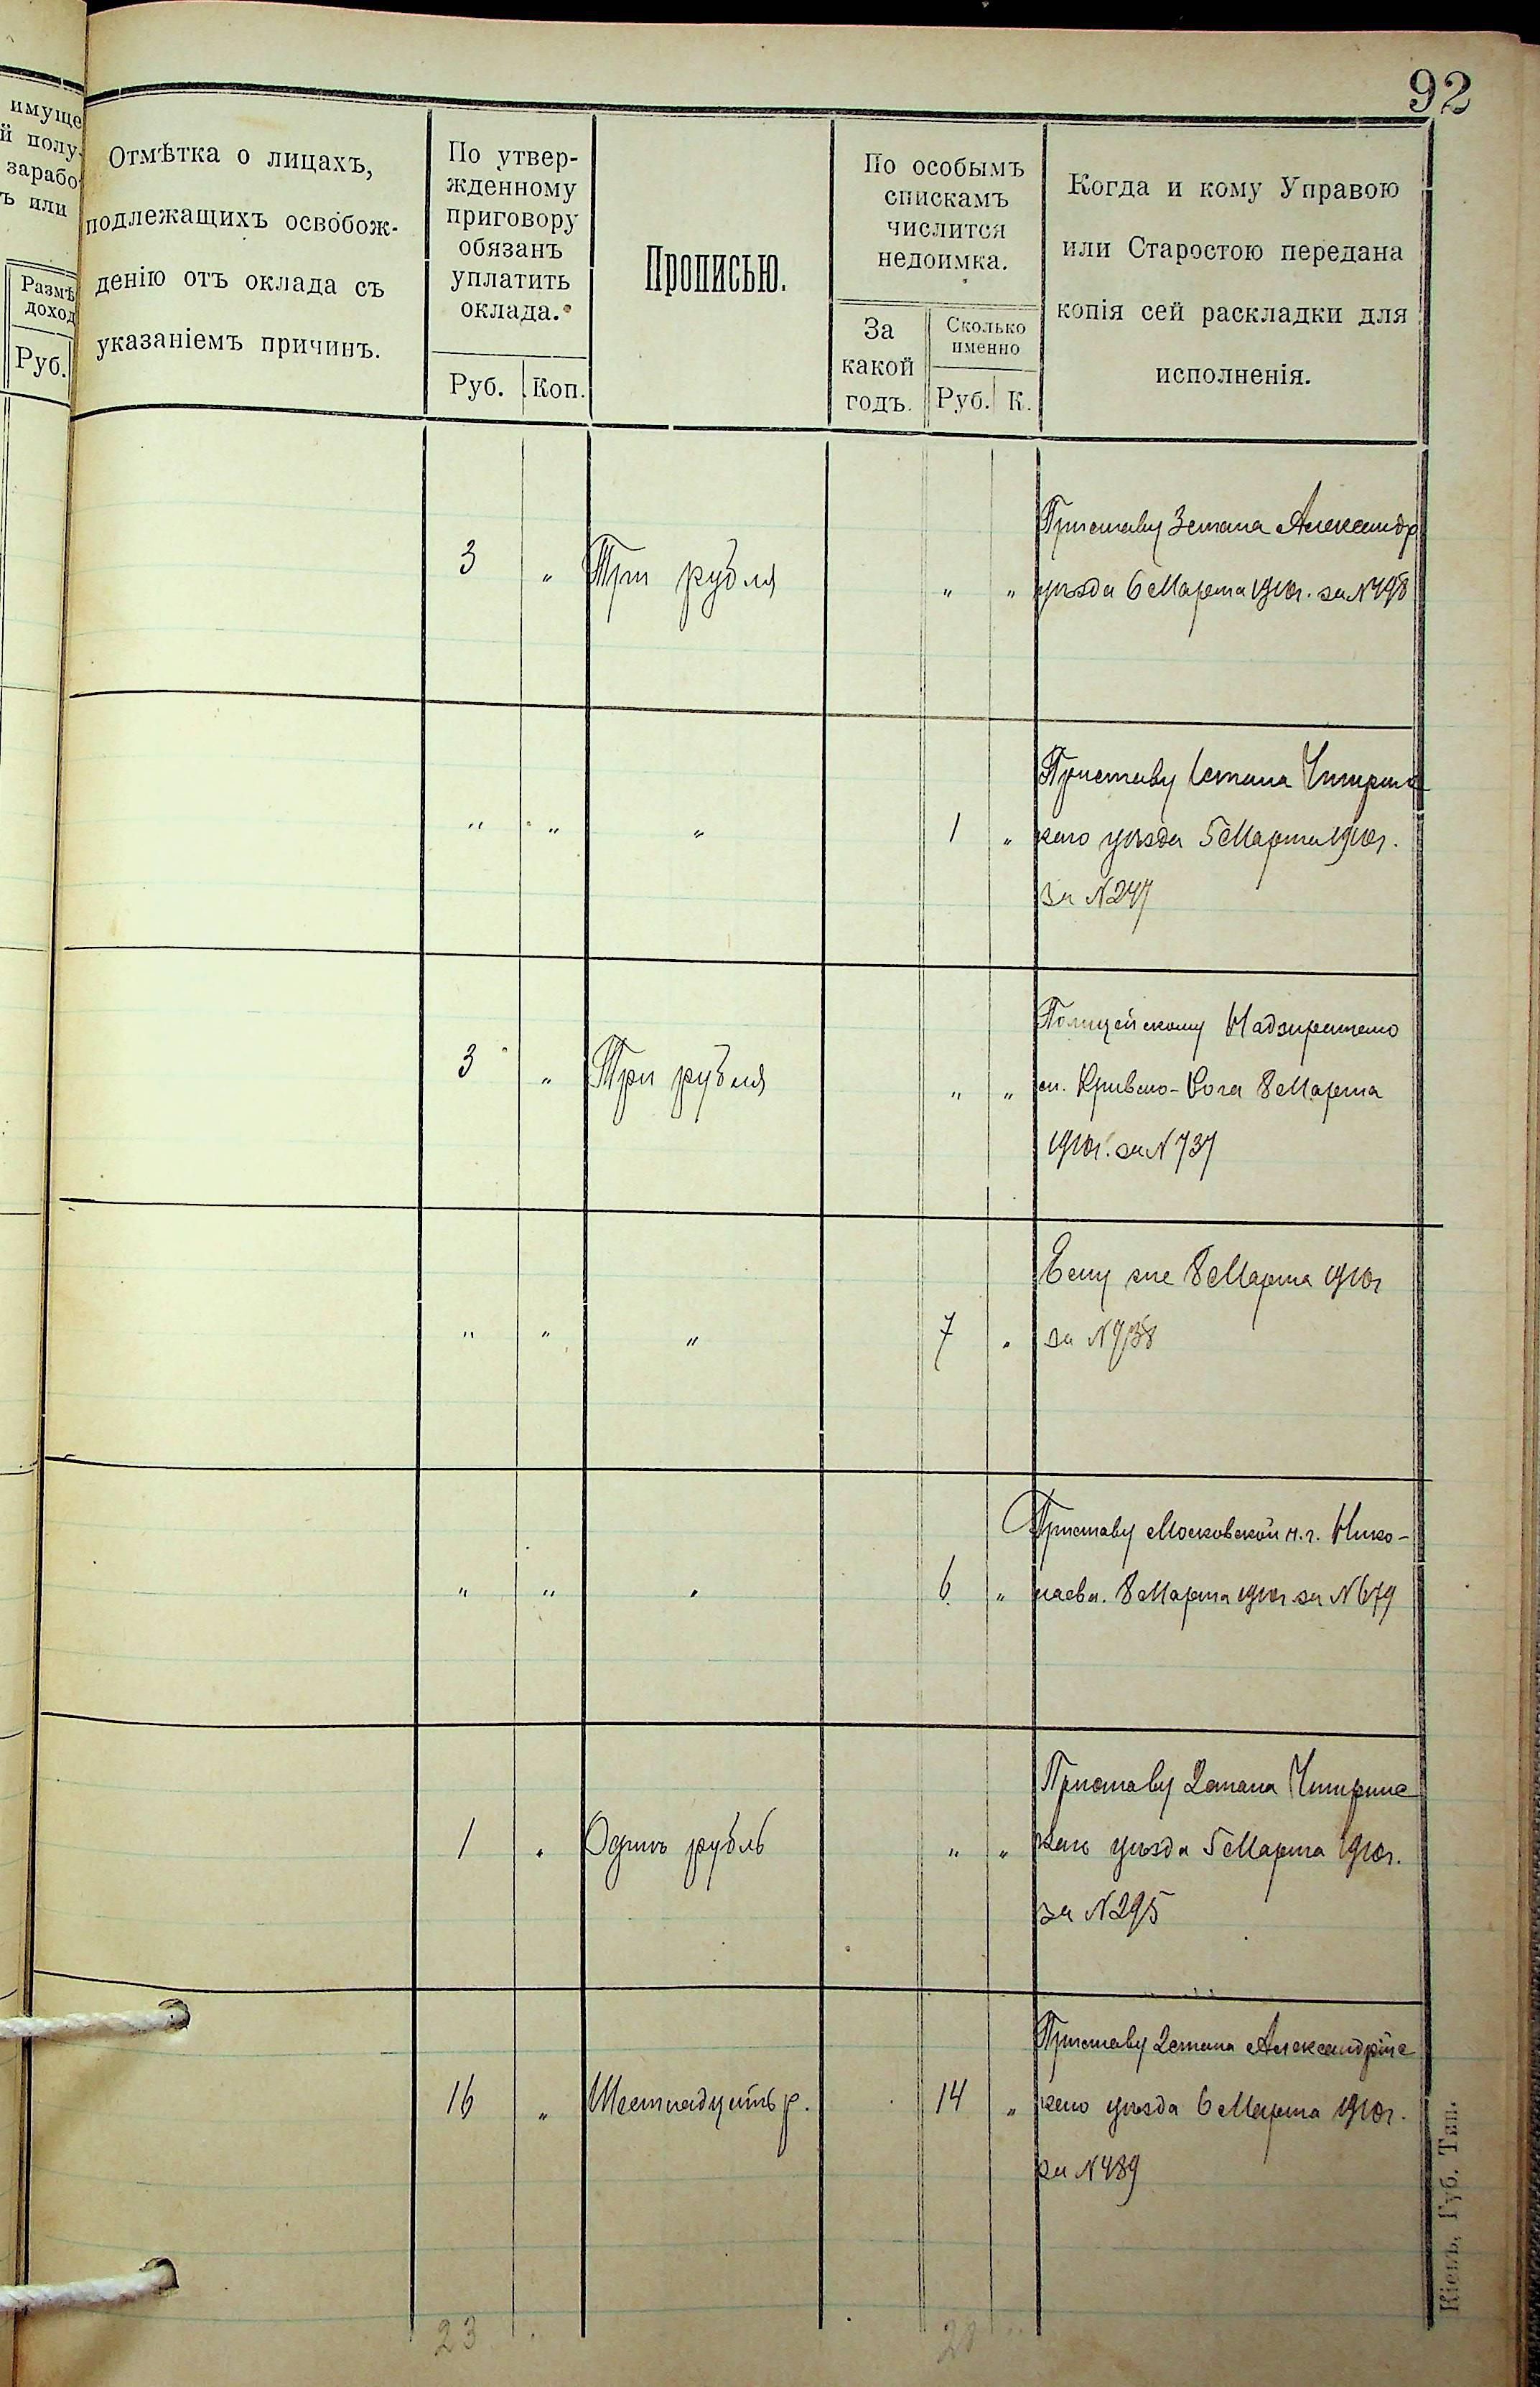 92
имуще
й полу-
зарабо
ъ или
Размѣ
доход
Руб.
Отмѣтка о лицахъ,
подлежащихъ освобож-
денію отъ оклада съ
указаніемъ причинъ.
По утвер-
жденному
приговору
обязанъ
уплатить
оклада.
Руб. Коп.
Прописью.
По особымъ
спискамъ
числится
недоимка.
За
какой
годъ.
Сколько
именно
Руб. К.
Когда и кому Управою
или Старостою передана
копія сей раскладки для
исполненія.
Приставу 3 стана Александр
3 " Три рубля " " уѣзда 6 Марта 1910г. за №498
Приставу 1 стана Чигринс
" " " 1 " каго уѣзда 5 Марта 1910г.
за №247
Полицейскому Надзирателю
3 " Три рубля " " м. Кривого-Рога 8 Марта
1910г. за №737
Ему же 8 Марта 1910г
" " " 7 " за №738
Приставу Московской ч. г. Нико-
" " " 6 " лаева. 8 Марта 1910г за №679
Приставу 2 стана Чигринс
1 " Одинъ рубль " " каго уѣзда 5 Марта 1910г.
за №295
Приставу 2 стана Александрійс
16 " Шестнадцать р. 14 " каго уѣзда 6 Марта 1910г.
за №489
23 28
Кіевъ, Губ. Тип.